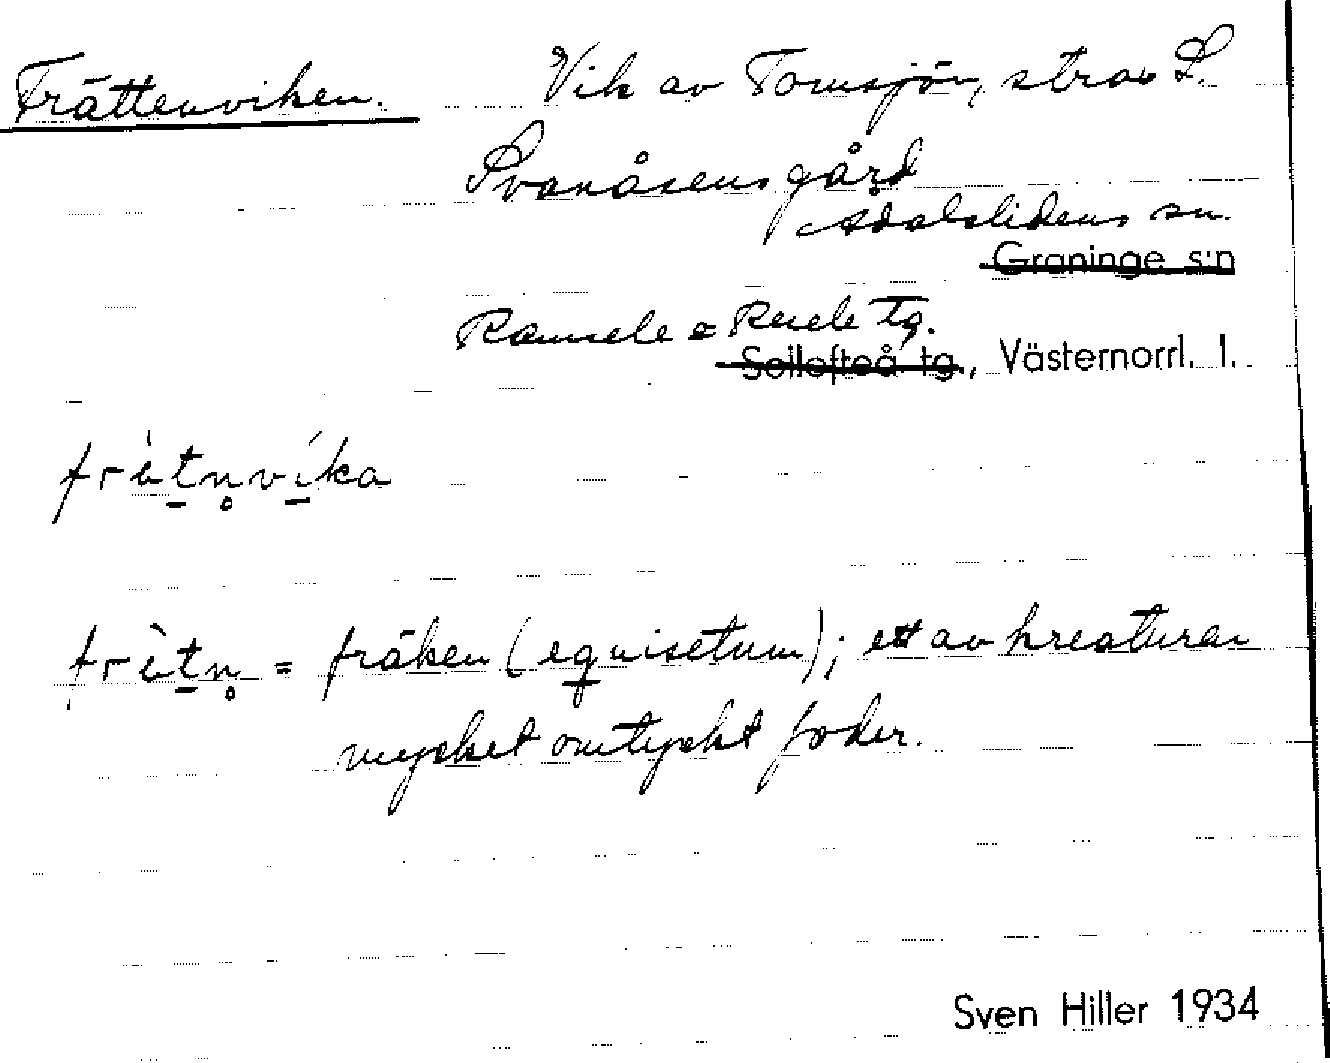 Frättenviken. Vik av Tomsjön, strax S.
Svanåsens gård
Ådalslidens sn.
Graninge s:n
Ramsele o Resele tg.
Sollefteå tg., Västernorrl. l.
frètn̥víka
frètn̥ = fräken (equisetum); ett av kreaturen
mycket omtyckt foder.
Sven Hiller 1934